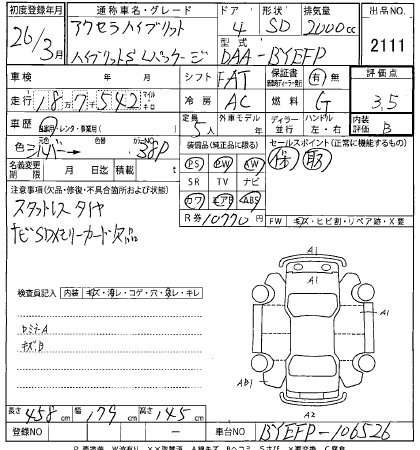 初度登録年月 通称車名・グレード ドア 形状 排気量 出品NO.
26/3月 アクセラハイブリット 4 SD 2000cc
ハイブリットS Lパッケージ 型式 DAA-BYEFP 2111
車検 年 月 シフト FAT 保証書 有 無 評価点
走行 18万7542 マイル キロ 冷房 AC 燃料 G 3.5
車歴 自家用・レンタ・事業用( ) 定員 5人 外車モデル 年 ディーラー 並行 ハンドル 左・右 内装評価 B
色 シルバー 色替 カラーNO. 38P 装備品(純正品に限る) セールスポイント(正常に機能するもの)
名義変更期限 月 日 積載 t PS PW AW 保 取
注意事項(欠品・修復・不具合箇所および状態) SR TV ナビ
スタットレスタイヤ カワ エアB ABS
ナビSDメモリーカード欠品 R券 10770円 FW キズ・ヒビ割・リペア跡・X要
検査員記入 内装 キズ・汚レ・コゲ・穴・良レ・キレ
キズ.B
A1
A1
A1
AB1
A2
長さ 458cm 幅 179cm 高さ 145cm
登録NO 車台NO. BYEFP-106526